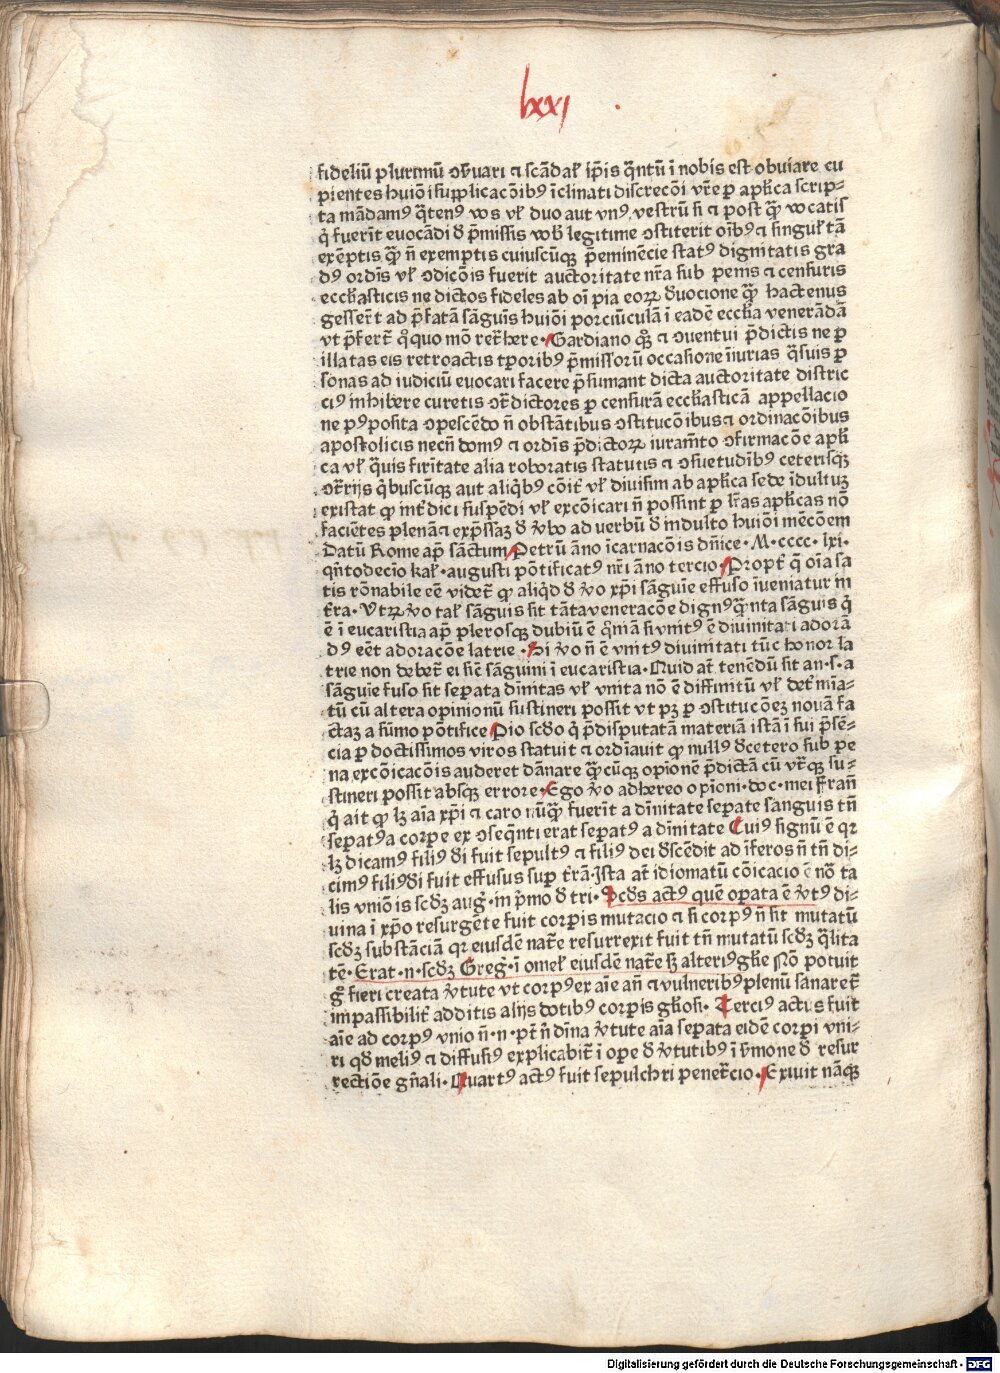 lxxj
fideliū plurimū ꝯẜuari ⁊ scādaƚ īp̄is q̄ntū ī nobis est obuiare cu
pientes huiōi suꝓplicacōibꝰ īclinati discrecōi vr̄e ꝑ apl̄ica scrip⸗
ta mādamꝰ q̄tenꝰ vos vƚ duo aut vnꝰ vestrū si ⁊ post ꝙ vocatis
q̇ fuerīt euocādi ꝺ p̄missis vob̄ legitime ꝯstiterit oībꝰ ⁊ singuƚ tā
exēptis ꝙ̄ n̄ exemptis cuiuscūqꝫ p̄eminēcie statꝰ dignitatis gra
dꝰ ordīs vƚ ꝯdicōis fuerit auctoritate nr̄a sub penis ⁊ censuris
eccƚiasticis ne dictos fideles ab oī pia eoꝝ ꝺuocione ꝙ̄ hactenus
gesser̄t ad p̄fatā sāguīs huiōi porciūculā ī eadē eccƚia venerādā
vt p̄fert̄ q̇quo mō ret̄here · Gardiano qꝫ ⁊ ꝯuentui p̄dictis ne ꝑ
illatas eis retroactis tꝑoribꝰ p̄missorū occasione īiurias q̄suis ꝑ
sonas ad iudiciū euocari facere p̄sumant dicta auctoritate distric
ciꝰ inhibere curetis ꝯt̄dictores ꝑ censurā eccƚiasticā appellacio
ne pꝰposita ꝯpescēdo n̄ obstātibus ꝯstitucōibus ⁊ ordinacōibus
apostolicis necn̄ domꝰ ⁊ ordīs p̄dictoꝝ iuram̄to ꝯfirmacōe apƚi
ca vƚ q̄uis firītate alia roboratis statutis ⁊ ꝯsuetudībꝰ ceterisqꝫ
ꝯt̄rijs q̇buscūqꝫ aut aliq̇bꝰ cōit̄ vƚ diuisim ab apƚica sede īdultuꝫ
existat ꝙ int̄dici suspēdi vƚ excōicari n̄ possint ꝑ lr̄as apƚicas nō
faciētes plenā ⁊ exp̄ssaꝫ ꝺ v̄bo ad verbū ꝺ indulto huiōi mēcōem
Datū Rome apꝰ sāctum Petrū āno īcarnacōis dn̄ice · M · cccc · lxi ·
qn̄todecīo kaƚ · augusti pōtificatꝰ nr̄i āno tercio · Propt̄ q̄ oīa sa
tis rōnabile eē videt̄ ꝙ aliq̇d ꝺ v̄o xp̄i sāguīe effuso īueniatur in
t̄ra · Vtꝝ v̄o taƚ sāguis sit tāta veneracōe dignꝰ q̄nta sāguis q̇
ē ī eucaristia apꝰ plerosqꝫ dubiū ē qm̄ā si vnitꝰ ē diuinitati adorā
dꝰ eēt adoracōe latrie · Si v̄o n̄ ē vnitꝰ diuinitati tūc honor la
trie non debet̄ ei sic̄ sāguini ī eucaristia · Quid at̄ tenēdū sit an · s · a
sāguīe fuso sit seꝑata dīnitas vƚ vnita nō ē diffinitū vƚ det̄mīa⸗
tū cū altera opinionū sustineri possit vt pꝫ ꝑ ꝯstitucōeꝫ nouā fa
ctaꝫ a sūmo pōtifice Pio scd̄o q̇ p̄disputatā materiā istā ī sui p̄sē⸗
cia ꝑ doctissimos viros statuit ⁊ ordīauit ꝙ nullꝰ ꝺcetero sub pe
na excōicacōis auderet dānare ꝙ̄cūqꝫ opionē p̄dictā cū vt̄qꝫ su⸗
stineri possit absqꝫ errore · Ego v̄o adhereo opīoni · doc · mei Fran̄
q̇ ait ꝙ lꝫ aīa xp̄i ⁊ caro nūꝙ̄ fuerīt a dīnitate seꝑate sanguis tn̄
seꝑatꝰ a corꝑe ex ꝯseq̄nti erat seꝑatꝰ a dīnitate Cuiꝰ signū ē qꝛ
lꝫ dicamꝰ filiꝰ ꝺi fuit sepultꝰ ⁊ filiꝰ dei ꝺscēdit ad īferos n̄ tn̄ di⸗
cimꝰ filiꝰ ꝺi fuit effusus suꝑ t̄rā · Ista at̄ idiomatū cōicacio ē nō ta
lis vniōis scd̄ꝫ augꝰ · in p̄mo ꝺ tri · Scd̄s actꝰ quē oꝑata ē v̄tꝰ di⸗
uina ī xp̄o resurgēte fuit corꝑis mutacio ⁊ si corpꝰ n̄ sit mutatū
scd̄ꝫ substāciā qꝛ eiusdē nat̄e resurrexit fuit tn̄ mutatū scd̄ꝫ q̄lita
tē · Erat · n · scd̄ꝫ Greġ · ī omeƚ eiusdē nat̄e sꝫ alteriꝰ gƚie Nō potuit
g̊ fieri creata v̄tute vt corpꝰ ex aīe an̄ ⁊ vulneribꝰ plenū sanaret̄
impassibilit̄ additis alijs dotibꝰ corꝑis gƚiosi · Terciꝰ actus fuit
aīe ad corpꝰ vnio n̄ · n · pt̄ n̄ dīna v̄tute aīa seꝑata eidē corpi vni⸗
ri qd̄ meliꝰ ⁊ diffusiꝰ explicabit̄ ī oꝑe ꝺ v̄tutibꝰ ī ẜmone ꝺ resur
rectiōe gn̄ali · Quartꝰ actꝰ fuit sepulchri penet̄cio · Exiuit nāqꝫ
Digitalisierung gefördert durch die Deutsche Forschungsgemeinschaft - DFG